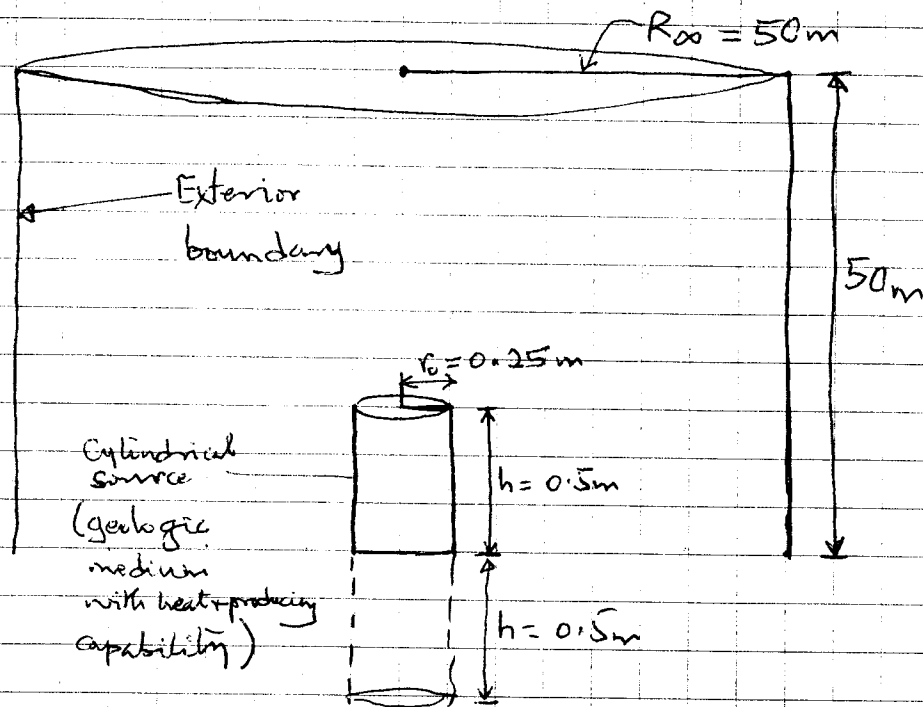 R∞ = 50m
Exterior
boundary
50m
r₀ = 0.25m
Cylindrical
source
(geologic
medium
with heat-producing
capability)
h = 0.5m
h = 0.5m